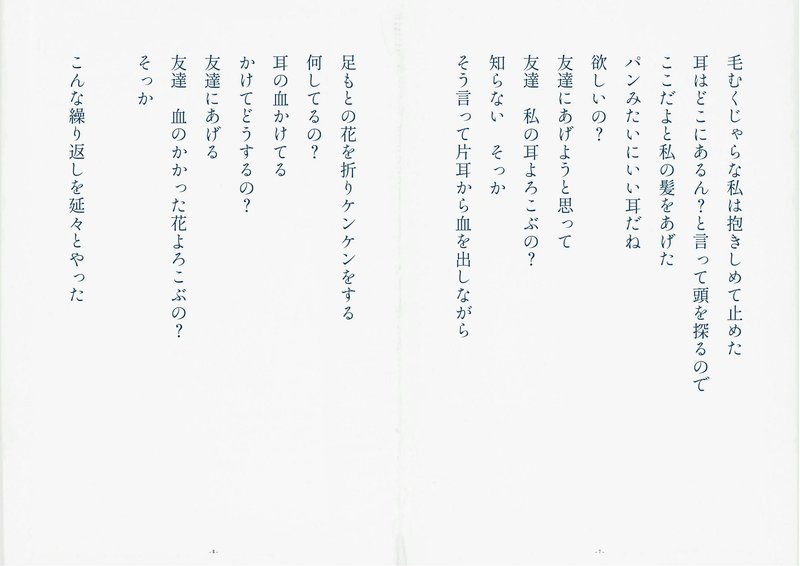 毛むくじゃらな私は抱きしめて止めた
耳はどこにあるん？と言って頭を探るので
ここだよと私の髪をあげた
パンみたいにいい耳だね
欲しいの？
友達にあげようと思って
友達　私の耳よろこぶの？
知らない　そっか
そう言って片耳から血を出しながら
-7-
足もとの花を折りケンケンをする
何してるの？
耳の血かけてる
かけてどうするの？
友達にあげる
友達　血のかかった花よろこぶの？
そっか
こんな繰り返しを延々とやった
-8-